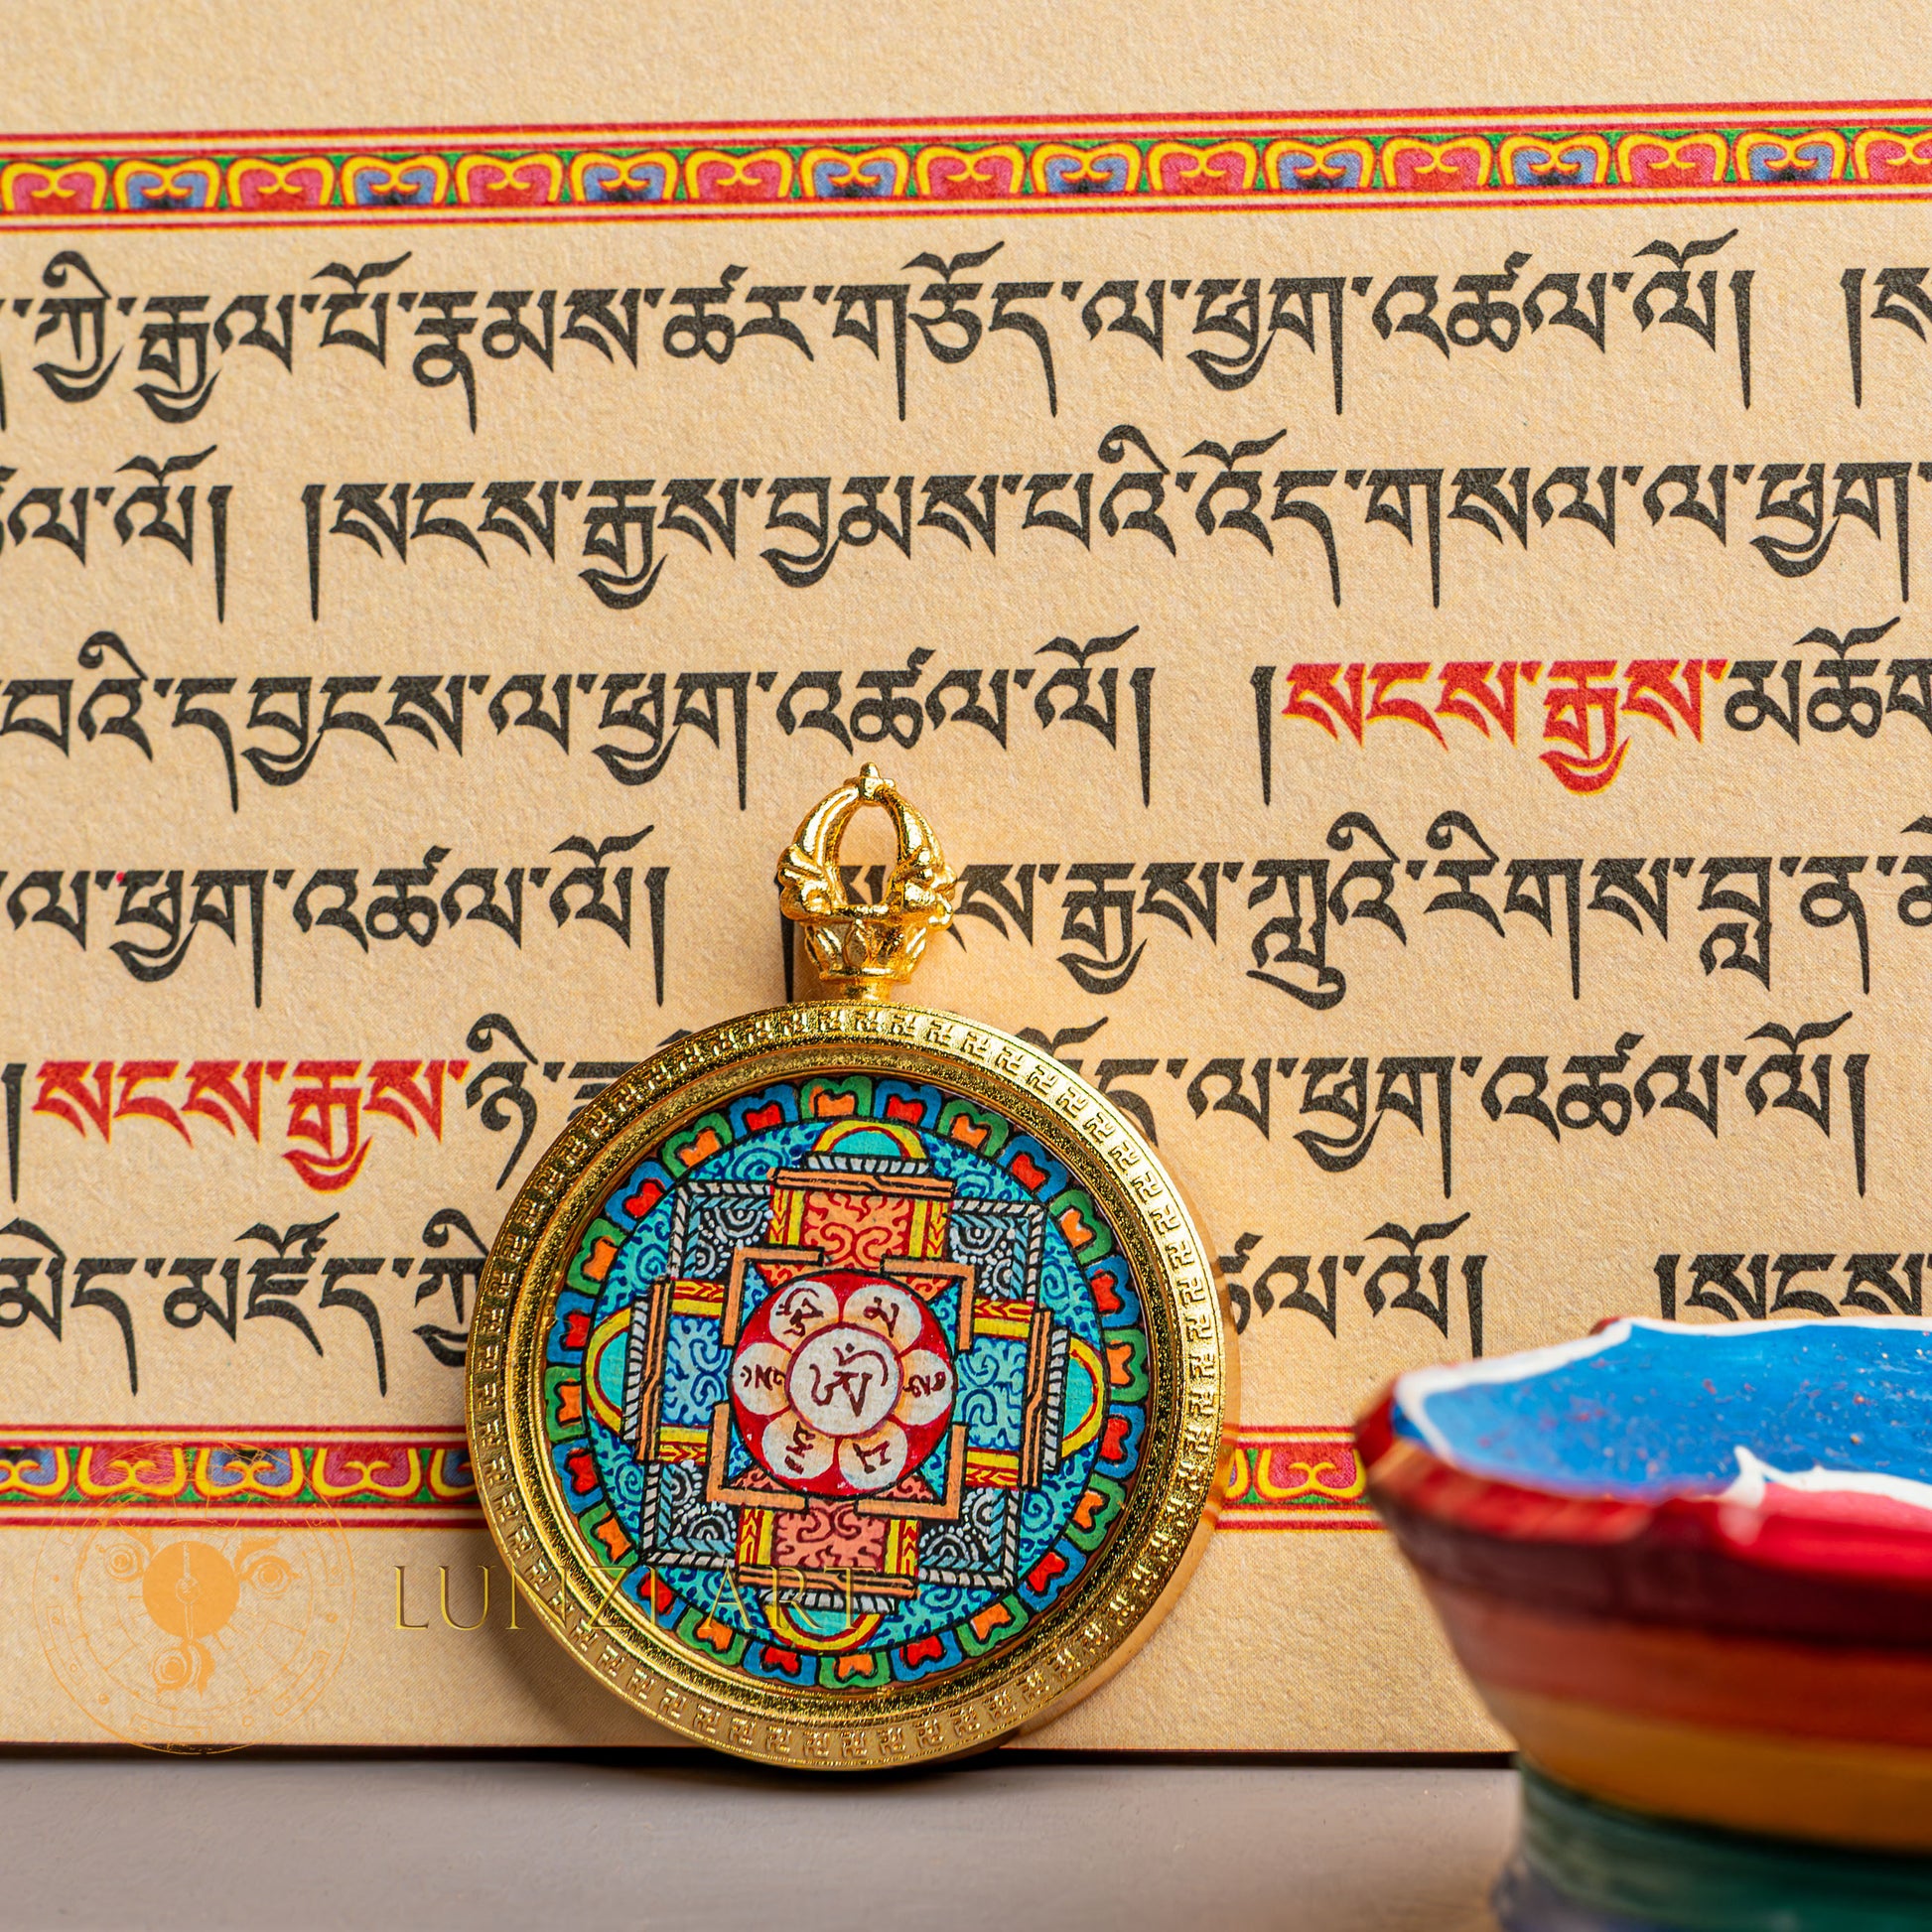 ཀྱི་རྒྱལ་པོ་རྣམས་ཚར་གཅོད་ལ་ཕྱག་འཚལ་ལོ། །ས
ལ་ལོ། །སངས་རྒྱས་བྱམས་པའི་འོད་གསལ་ལ་ཕྱག
པའི་དབྱངས་ལ་ཕྱག་འཚལ་ལོ། །སངས་རྒྱས་མཆོག
ལ་ཕྱག་འཚལ་ལོ། སངས་རྒྱས་ཀླུའི་རིགས་བླ་ན་མེ
།སངས་རྒྱས་ཉི་ ད་ལ་ཕྱག་འཚལ་ལོ།
མེད་མཛོད་ཀྱི ཚལ་ལོ། །སངས
ཨོཾ
མ
ཎི
པ
LUNZI ART